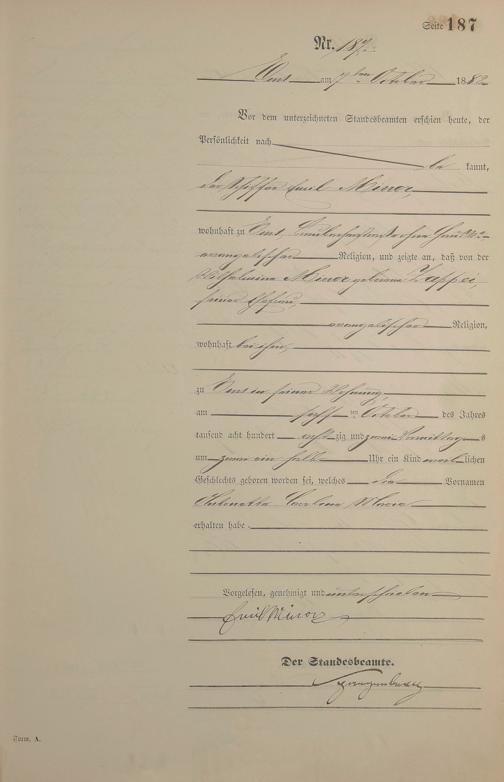 Seite 187
Nr. 187.
Ems am 7ten October 1882
Vor dem unterzeichneten Standesbeamten erschien heute, der
Persönlichkeit nach
be kannt,
der Schiffer Emil Minor,
wohnhaft zu Ems,
evangelischer Religion, und zeigte an, daß von der
Wilhelmina Minor geborene Zappei,
seiner Ehefrau,
evangelischer Religion,
wohnhaft bei ihm,
zu Ems in seiner Wohnung,
am October des Jahres
tausend acht hundert acht zig und zwei Vormittags
um ein halb Uhr ein Kind weiblichen
Geschlechts geboren worden sei, welches die Vornamen
Carolina Maria
erhalten habe.
Vorgelesen, genehmigt und unterschrieben
Emil Minor
Der Standesbeamte.
Form. A.